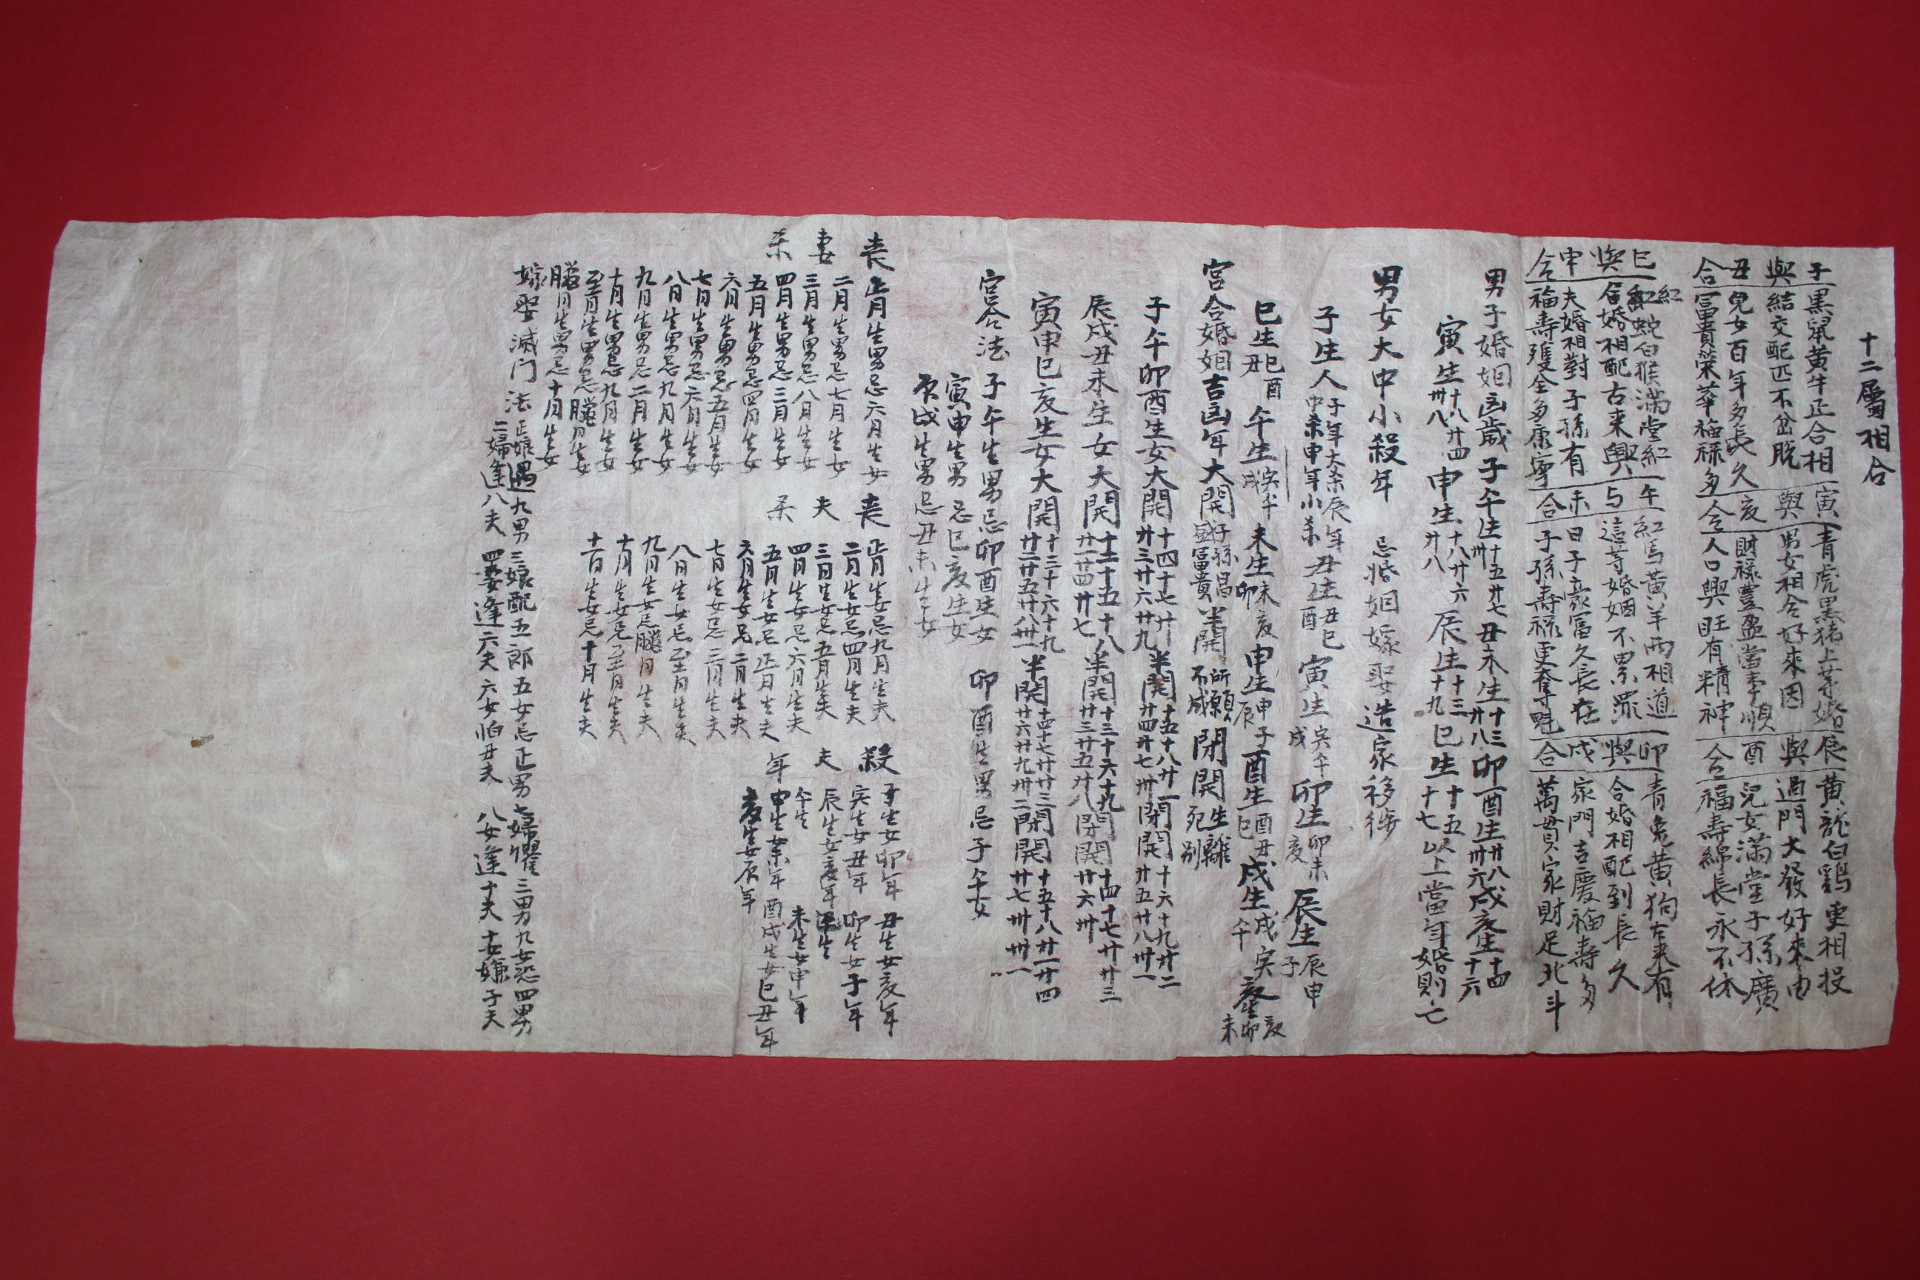 十二屬相合
子與丑合 黑鼠黃牛正合相
結交配匹不岔脫
兒女百年多長久
富貴榮華福祿多
寅與亥合 青虎黑猪上等婚
男女相合好來因
財祿豐盈當事順
人口興旺有精神
辰與酉合 黃龍白鷄更相投
過門大發好來由
兒女滿堂子孫廣
福壽綿長永不休
巳與申合 紅蛇白猴滿堂紅
合婚相配古來興
夫婚相對子孫有
福壽雙全多康寧
午与未合 紅馬黃羊兩相道
這等婚姻不累衆
日子豪富久長在
子孫壽祿更奪魁
卯與戌合 青兔黃狗古來有
合婚相配到長久
家門吉慶福壽多
萬貫家財足北斗
男子婚姻凶歲 子午生十五廿七卅 丑未生十三廿八 卯酉生廿八卅六 戌亥生十四十六
寅生十八廿四卅八 申生十八廿六廿八 辰生十三十九 巳生十五十七 以上當年婚則亡
男女大中小殺年 忌婚姻嫁娶造家移徙
子生人子年大杀辰年中杀申年小杀 丑生丑巳酉 寅生寅午戌 卯生卯未亥 辰生辰申子
巳生巳酉丑 午生寅午戌 未生未亥卯 申生申子辰 酉生酉丑巳 戌生戌寅午 亥生亥卯未
宮合婚姻吉凶年 大開子孫昌盛富貴 半開所願不成 閉開生離死別
子午卯酉生女 大開十四十七廿廿三廿六廿九 半開十五十八廿一廿四廿七卅 閉開十六十九廿二廿五廿八卅一
辰戌丑未生女 大開十二十五十八廿一廿四廿七 半開十三十六十九廿三廿五廿八 閉開十四十七廿廿三廿六卅
寅申巳亥生女 大開十三十六十九廿二廿五廿八卅一 半開十四十七廿廿三廿六廿九卅二 閉開十五十八廿一廿四廿七卅卅一
宮合法 子午生男忌卯酉生女 卯酉生男忌子午女
寅申生男忌巳亥生女
辰戌生男忌丑未生女
喪妻杀
正月生男忌六月生女
二月生男忌七月生女
三月生男忌八月生女
四月生男忌三月生女
五月生男忌四月生女
六月生男忌五月生女
七月生男忌六月生女
八月生男忌九月生女
九月生男忌二月生女
十月生男忌九月生女
至月生男忌臘月生女
臘月生男忌十月生女
喪夫杀
正月生女忌九月生夫
二月生女忌四月生夫
三月生女忌五月生夫
四月生女忌六月生夫
五月生女忌正月生夫
六月生女忌二月生夫
七月生女忌三月生夫
八月生女忌至月生夫
九月生女忌臘月生夫
十月生女忌至月生夫
十一月生女忌十月生夫
殺夫年
子生女卯年 丑生女亥年
寅生女丑年 卯生女子年
辰生女亥年 巳生
午生 未生女申年
申生 年 酉戌生女巳丑年
亥生女辰年
嫁娶滅門法 正娘遇九男 三娘配五郎 五女忌正男 七婦懼三男 九女恐四男
二婦逢八夫 四妻逢六夫 六女怕丑夫 八女逢十夫 十女嫌子夫